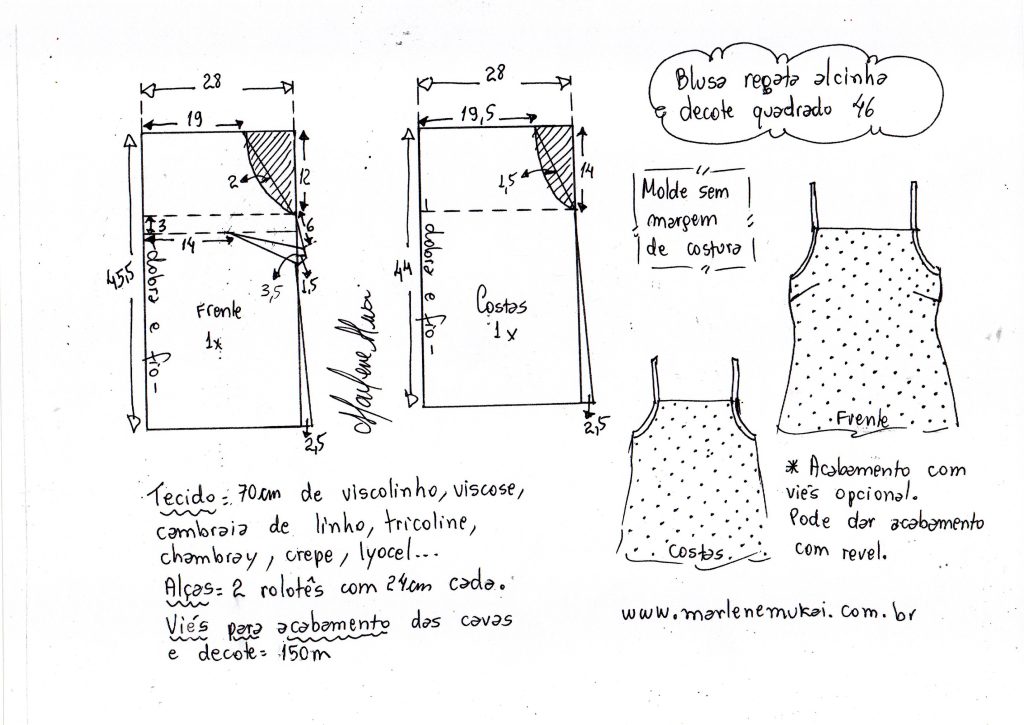 Blusa regata alcinha
e decote quadrado 46
28
19
2
12
3
6
14
3,5
1,5
45,5
dobra e fio
Frente
1x
2,5
Marlene Mukai
28
19,5
1,5
14
44
dobra e fio
Costas
1x
2,5
Molde sem
margem
de costura
Frente
Costas
* Acabamento com
viés opcional.
Pode dar acabamento
com revel.
www.marlenemukai.com.br
Tecido = 70cm de viscolinho, viscose,
cambraia de linho, tricoline,
chambray, crepe, lyocel...
Alças = 2 rolotês com 24cm cada.
Viés para acabamento das cavas
e decote = 150m